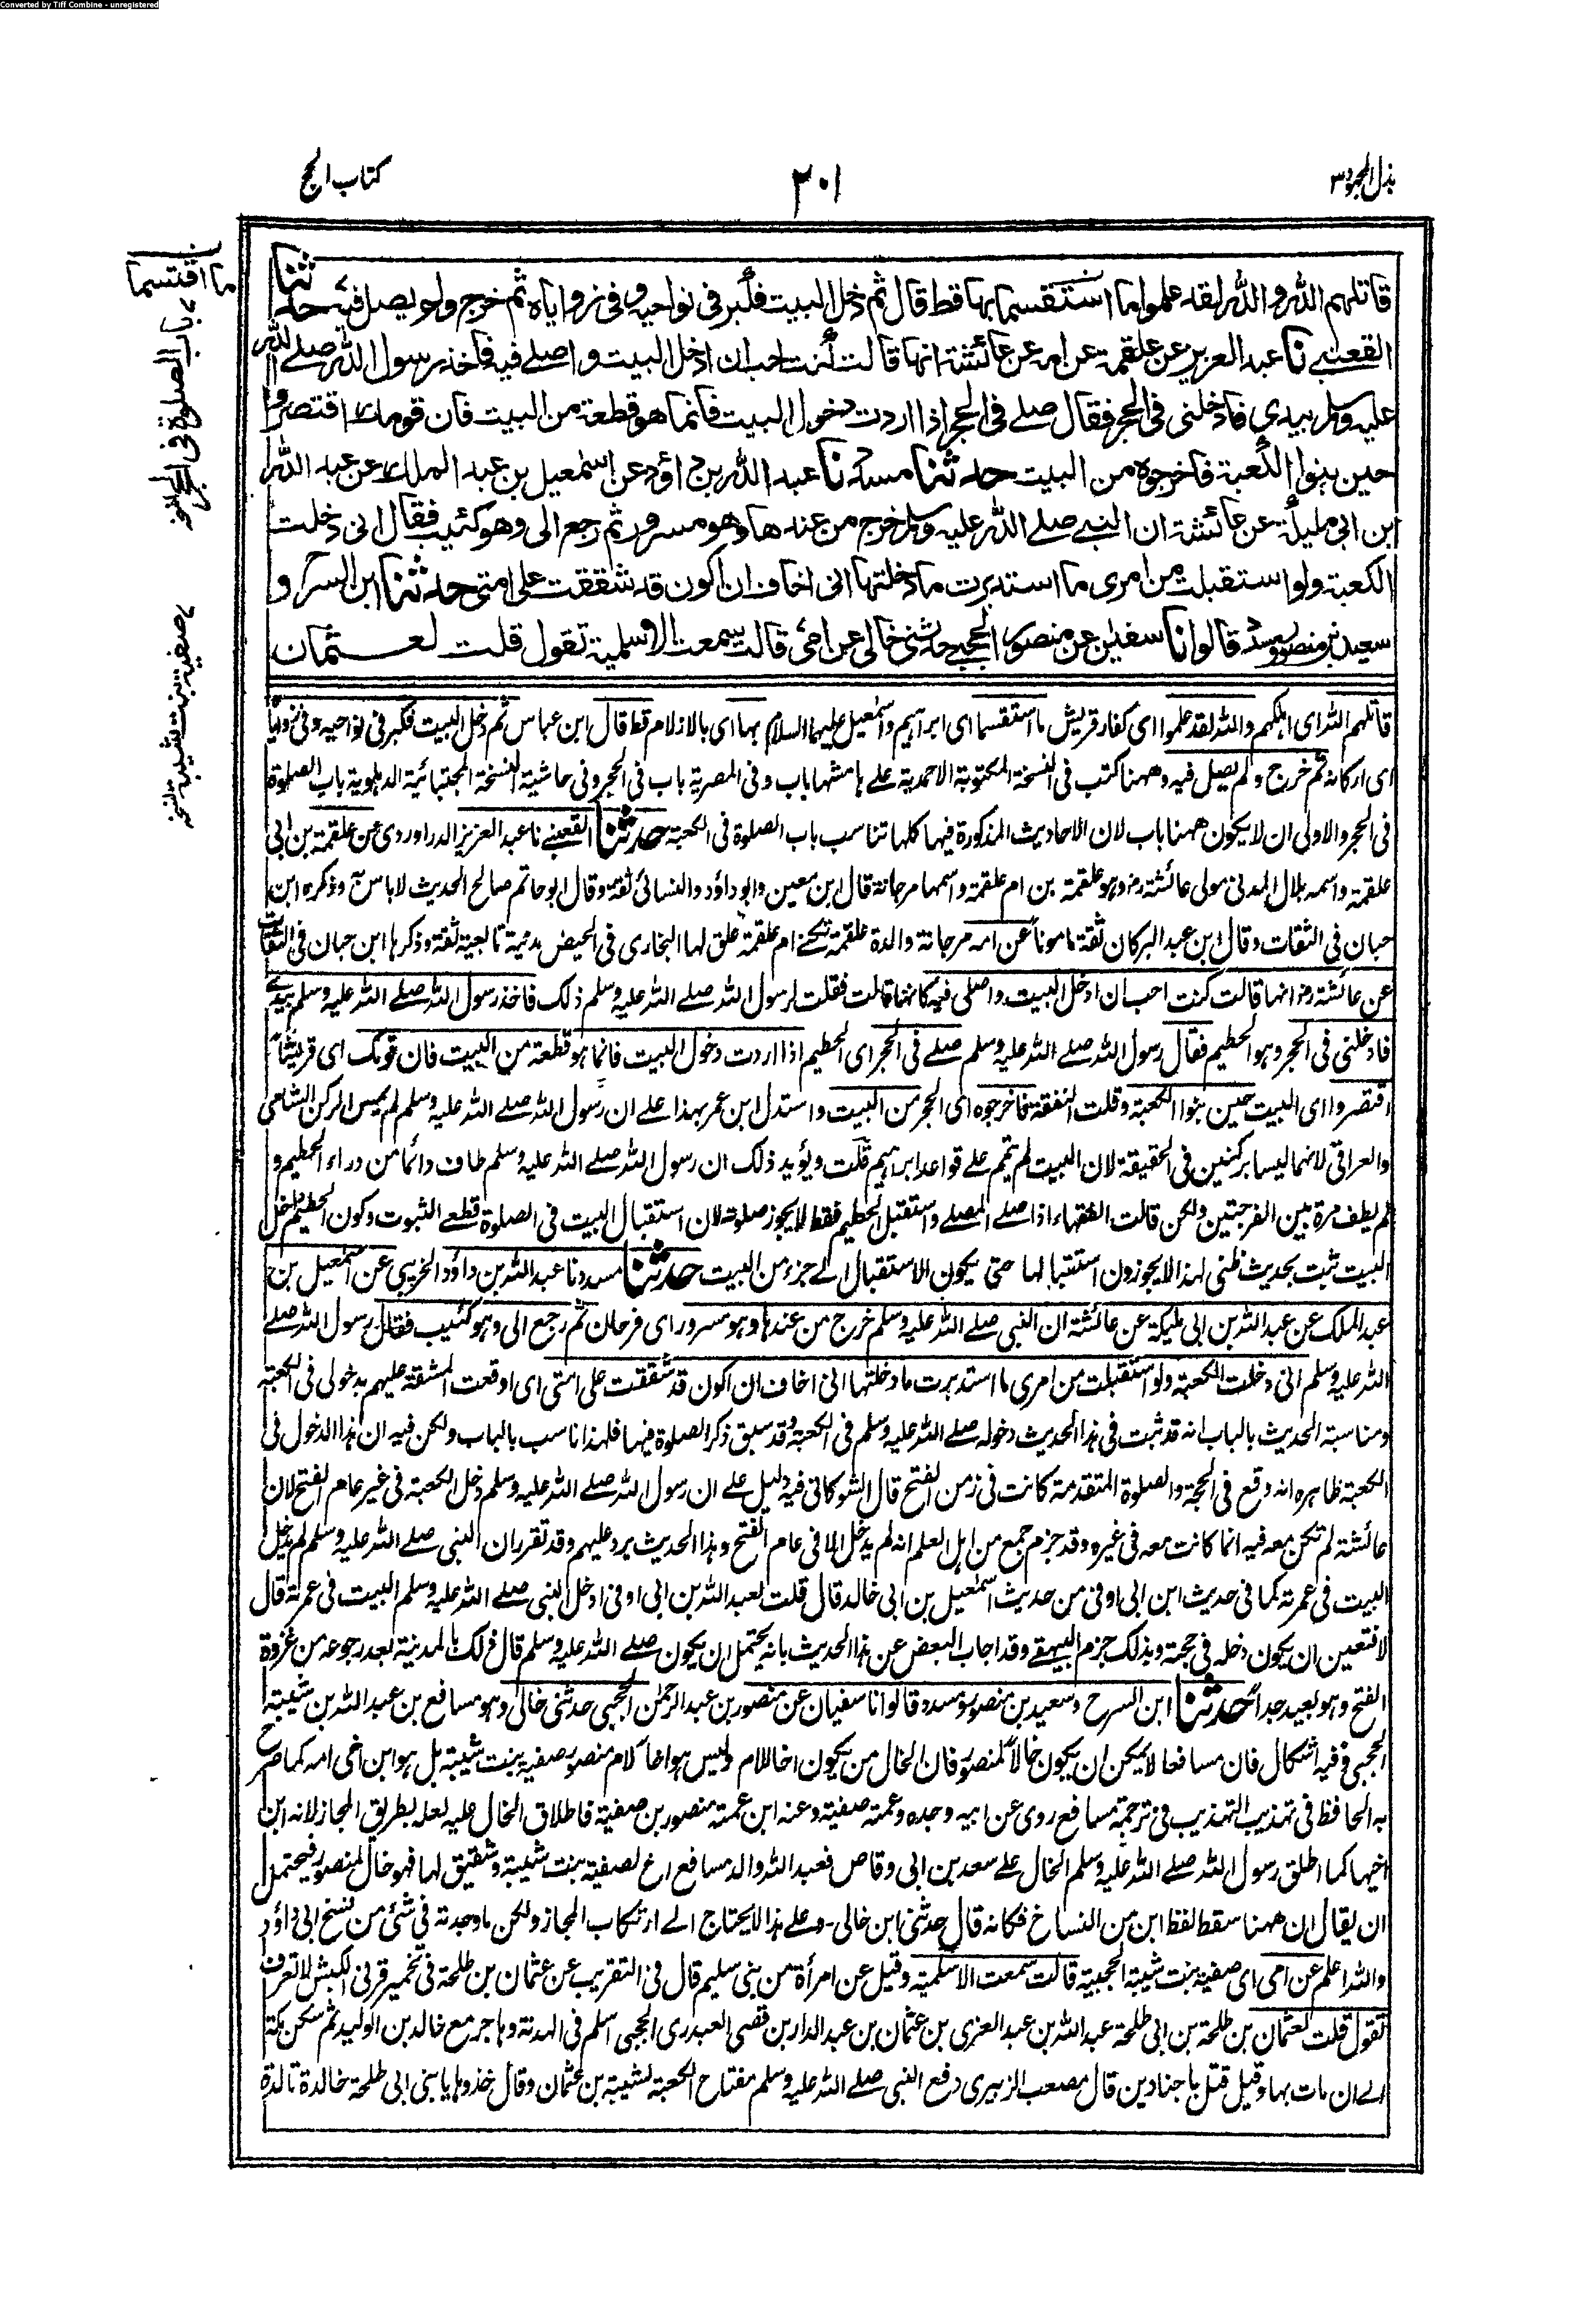 Converted by Tiff Combine - unregistered
بذل المجہود ۳
۲۰۱
کتاب الحج
قاتلہم اللہ واللہ لقد علموا ما استقسما بہا قط قال ثم دخل البیت فکبر فی نواحیہ وفی زوایاہ ثم خرج ولم یصل فیہ حدثنا
القعنبی نا عبد العزیز عن علقمۃ عن امہ عن عائشۃ انہا قالت کنت احب ان ادخل البیت واصلی فیہ فاخذ رسول اللہ صلے اللہ
علیہ وسلم بیدی فادخلنی فی الحجر فقال صلے فی الحجر اذا اردت دخول البیت فانما هو قطعة من البیت فان قومك اقتصروا
حین بنوا الکعبة فاخرجوہ من البیت حدثنا مسدد نا عبد اللہ بن داؤد عن اسمٰعیل بن عبد الملك عن عبد اللہ
ابن ابی ملیکۃ عن عائشۃ ان النبے صلے اللہ علیہ وسلم خرج من عندها وهو مسرور ثم رجع الی وهو کئیب فقال انی دخلت
الکعبۃ ولو استقبلت من امری ما استدبرت ما دخلتہا انی اخاف ان اکون قد شققت علی امتی حدثنا ابن السرح و
سعید بن منصور ومسدد قالوا نا سفیٰن عن منصور الحجبے حدثنی خالی عن امی قالت سمعت الاسلمیة تقول قلت لعثمان
ما اقتسما
باب الصلوة فی الحجر
صفیة بنت شیبة
قاتلہم اللہ ای اہلکہم واللہ لقد علموا ای کفار قریش ما استقسما ای ابراہیم واسمٰعیل علیہما السلام بہا ای بالازلام قط قال ابن عباس ثم دخل البیت فکبر فی نواحیہ وفی زوایاہ
ای ارکانہ ثم خرج ولم یصل فیہ وههنا کتب فی النسخۃ المکتوبۃ الاحمدیۃ علے ہامشہا باب وفی المصریۃ باب فی الحجر وفی حاشیۃ النسخۃ المجتبائیۃ الدہلویۃ باب الصلوۃ
فی الحجر والاولی ان لا یکون ههنا باب لان الاحادیث المذکورۃ فیہا کلہا تناسب باب الصلوۃ فی الکعبۃ حدثنا القعنبے نا عبد العزیز الدراوردی عن علقمۃ بن ابی
علقمۃ واسمہ بلال المدنی مولی عائشۃ رض وہو علقمۃ بن ام علقمۃ واسمہا مرجانۃ قال ابن معین وابو داؤد والنسائی ثقۃ وقال ابو حاتم صالح الحدیث لا باس بہ وذکرہ ابن
حبان فی الثقات وقال ابن عبد البر کان ثقۃ مامونا عن امہ مرجانۃ والدۃ علقمۃ تکنے ام علقمۃ علق لہا البخاری فی الحیض مدنیۃ تابعیۃ ثقۃ وذکرہا ابن حبان فی الثقات
عن عائشۃ رض انہا قالت کنت احب ان ادخل البیت واصلی فیہ کانہا قالت فقلت لرسول اللہ صلے اللہ علیہ وسلم ذلک فاخذ رسول اللہ صلے اللہ علیہ وسلم بیدے
فادخلنی فی الحجر وہو الحطیم فقال رسول اللہ صلے اللہ علیہ وسلم صلے فی الحجر ای الحطیم اذا اردت دخول البیت فانما ہو قطعۃ من البیت فان قومک ای قریشا
اقتصروا ای البیت حین بنوا الکعبۃ وقلت النفقۃ فاخرجوہ ای الحجر من البیت واستدل ابن عمر بہذا علے ان رسول اللہ صلے اللہ علیہ وسلم لم یمس الرکن الشامی
والعراقی لانہما لیسا برکنین فی الحقیقۃ لان البیت لم یتم علے قواعد ابراہیم قلت ویؤید ذلک ان رسول اللہ صلے اللہ علیہ وسلم طاف دائما من وراء الحطیم و
لم یطف مرۃ بین الفرجتین ولکن قالت الفقہاء اذا صلے المصلے واستقبل الحطیم فقط لا یجوز صلوتہ لان استقبال البیت فی الصلوۃ قطعے الثبوت وکون الحطیم داخل
البیت ثبت بحدیث ظنی لہذا لا یجوزون استقبالہا حتی یکون الاستقبال الے جزء من البیت حدثنا مسدد نا عبد اللہ بن داؤد الخریبی عن اسمٰعیل بن
عبد الملک عن عبد اللہ بن ابی ملیکۃ عن عائشۃ ان النبی صلے اللہ علیہ وسلم خرج من عندہا وہو مسرور ای فرحان ثم رجع الی وہو کئیب فقال رسول اللہ صلے
اللہ علیہ وسلم انی دخلت الکعبۃ ولو استقبلت من امری ما استدبرت ما دخلتہا انی اخاف ان اکون قد شققت علی امتی ای اوقعت المشقۃ علیہم بدخولی فی الکعبۃ
ومناسبۃ الحدیث بالباب انہ قد ثبت فی ہذا الحدیث دخولہ صلے اللہ علیہ وسلم فی الکعبۃ وقد سبق ذکر الصلوۃ فیہا فلہذا ناسب بالباب ولکن فیہ ان ہذا الدخول فی
الکعبۃ ظاہرہ انہ وقع فی الحجۃ والصلوۃ المتقدمۃ کانت فی زمن الفتح قال الشوکانی فیہ دلیل علے ان رسول اللہ صلے اللہ علیہ وسلم دخل الکعبۃ فی غیر عام الفتح لان
عائشۃ لم تکن معہ فیہ انما کانت معہ فی غیرہ وقد جزم جمع من اہل العلم انہ لم یدخل الا فی عام الفتح وہذا الحدیث یرد علیہم وقد تقرر ان النبی صلے اللہ علیہ وسلم لم یدخل
البیت فی عمرتہ کما فی حدیث ابن ابی اوفی من حدیث اسمٰعیل بن ابی خالد قال قلت لعبد اللہ بن ابی اوفی ادخل النبی صلے اللہ علیہ وسلم البیت فی عمرتہ قال
لا فتعین ان یکون دخلہ فی حجتہ وبذلک جزم البیہقے وقد اجاب البعض عن ہذا الحدیث بانہ یحتمل ان یکون صلے اللہ علیہ وسلم قال ذلک بالمدینۃ بعد رجوعہ من غزوۃ
الفتح وہو بعید جدا حدثنا ابن السرح وسعید بن منصور ومسدد وقالوا نا سفیان عن منصور بن عبد الرحمٰن الحجبی حدثنی خالی وہو مسافع بن عبد اللہ بن شیبۃ
الحجبی وفیہ اشکال فان مسافعا لا یمکن ان یکون خالا لمنصور فان الخال من یکون اخا للام ولیس ہو اخا لام منصور صفیۃ بنت شیبۃ بل ہو ابن اخی امہ کما صرح
بہ الحافظ فی تہذیب التہذیب فی ترجمۃ مسافع روی عن ابیہ وجدہ وعمتہ صفیۃ وعنہ ابن عمتہ منصور بن صفیۃ فاطلاق الخال علیہ لعلہ بطریق المجاز لانہ ابن
اخیہا کما اطلق رسول اللہ صلے اللہ علیہ وسلم الخال علے سعد بن ابی وقاص فعبد اللہ والد مسافع اخ لصفیۃ بنت شیبۃ وشقیق لہا فہو خال لمنصور فیحتمل
ان یقال ان ههنا سقط لفظ ابن من النساخ فکانہ قال حدثنی ابن خالی۔ وعلے ہذا لا یحتاج الے ارتکاب المجاز ولکن ما وجدتہ فی شئ من نسخ ابی داؤد
واللہ اعلم عن امی ای صفیۃ بنت شیبۃ الحجبیۃ قالت سمعت الاسلمیۃ وقیل عن امرأۃ من بنی سلیم قال فی التقریب عن عثمان بن طلحۃ فی تخمیر قرنی الکبش لا تعرف
تقول قلت لعثمان بن طلحۃ بن ابی طلحۃ عبد اللہ بن عبد العزی بن عثمان بن عبد الدار بن قصی العبدری الحجبی اسلم فی الہدنۃ وہاجر مع خالد بن الولید ثم سکن مکۃ
الے ان مات بہا وقیل قتل باجنادین قال مصعب الزبیری دفع النبی صلے اللہ علیہ وسلم مفتاح الکعبۃ لشیبۃ بن عثمان وقال خذوہا یا بنی ابی طلحۃ خالدۃ تالدۃ